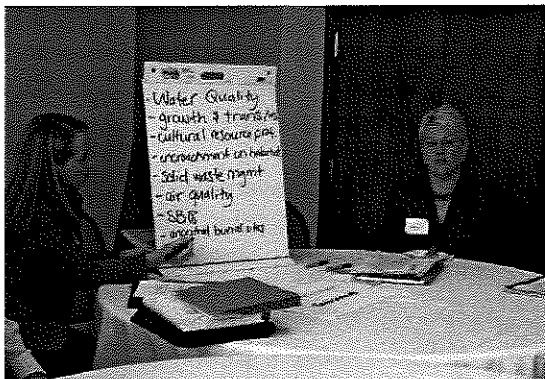 - Water Quality
- growth & trans
- cultural resource
- encroachment on
- Solid waste mgmt
- air quality
- SB18
- ancestral burial sites